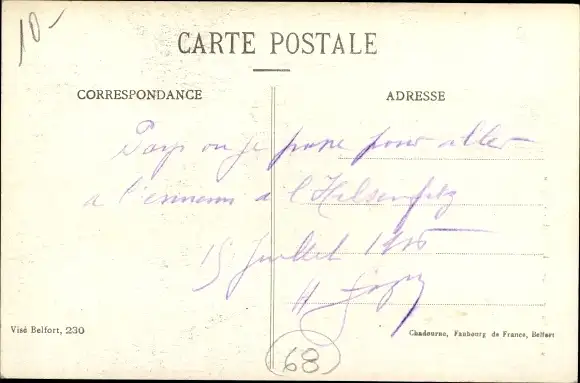 10-
CARTE POSTALE
CORRESPONDANCE
ADRESSE
Pays ou je passe pour aller
a l'ennemi a l'Hilsenfirtz
15 Juillet 1915
H
Visé Belfort, 230
Chadourne, Faubourg de France, Belfort
68